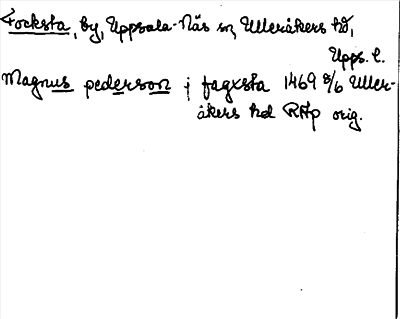 Focksta, by, Uppsala-Näs sn, Ulleråkers hd,
Upps. l.
Magnus pederson j fagxsta 1469 8/6 Uller-
åkers hd RAp orig.